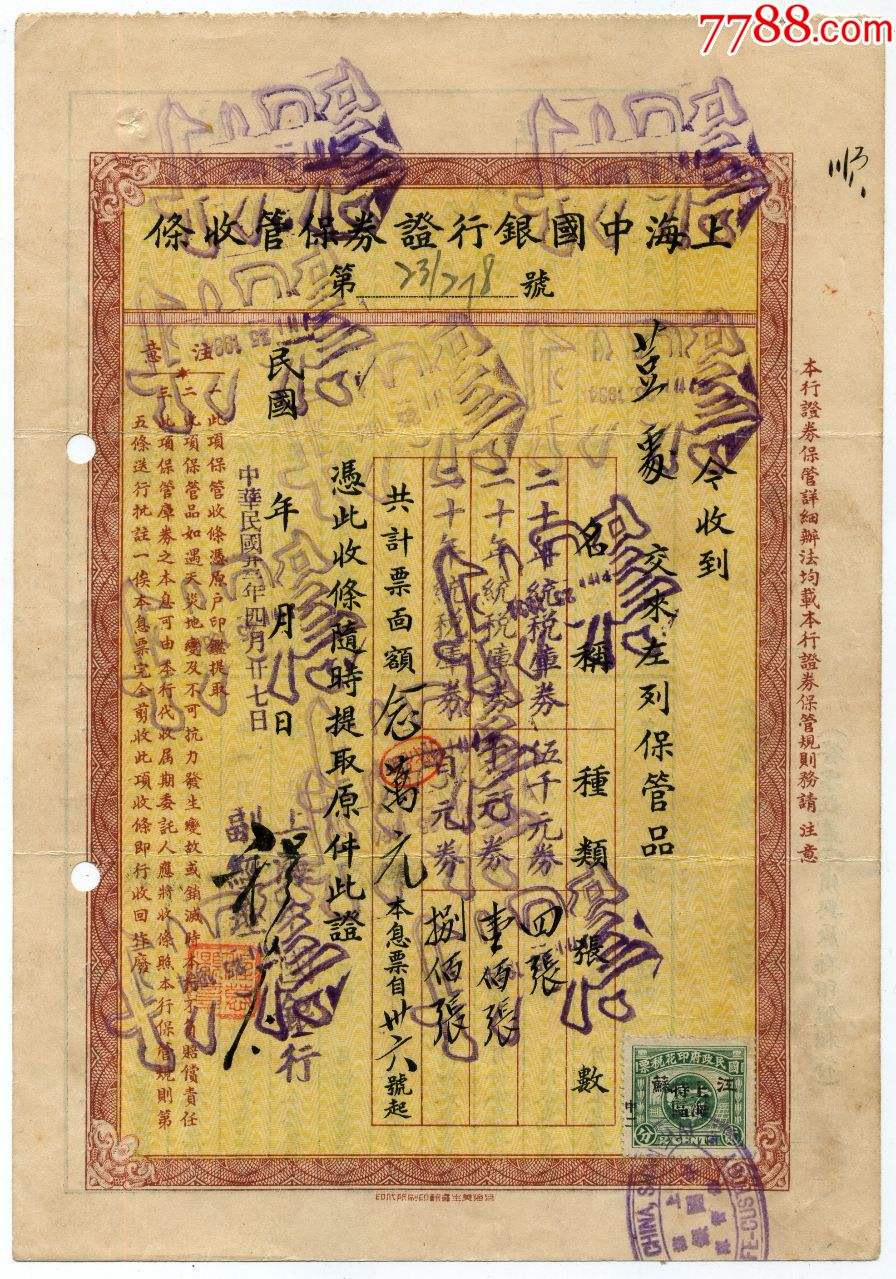 7788.com
順
上海中國銀行證券保管收條
第 23/278 號
今收到
荳彥
交來左列保管品
名稱 種類 張數
二十年統稅庫券 伍千元券 四張
二十年統稅庫券 千元券 壹佰張
二十年統稅庫券 百元券 捌佰張
共計票面額 念萬元 本息票自 卅六 號起
憑此收條隨時提取原件此證
民國 年 月 日
中華民國廿三年四月廿七日
上海中國銀行
副經理
注意
一 此項保管收條憑原戶印鑑提取
二 此項保管品如遇天災地變及不可抗力發生變故或銷滅時本行不負賠償責任
三 此項保管庫券之本息可由本行代收屆期委託人應將收條照本行保管規則第
五條送行批註一俟本息票完全剪收此項收條即行收回作廢
本行證券保管詳細辦法均載本行證券保管規則務請 注意
國民政府印花稅票
江蘇
上海特區
2 CENTS
CHINA, S
FE-CUST